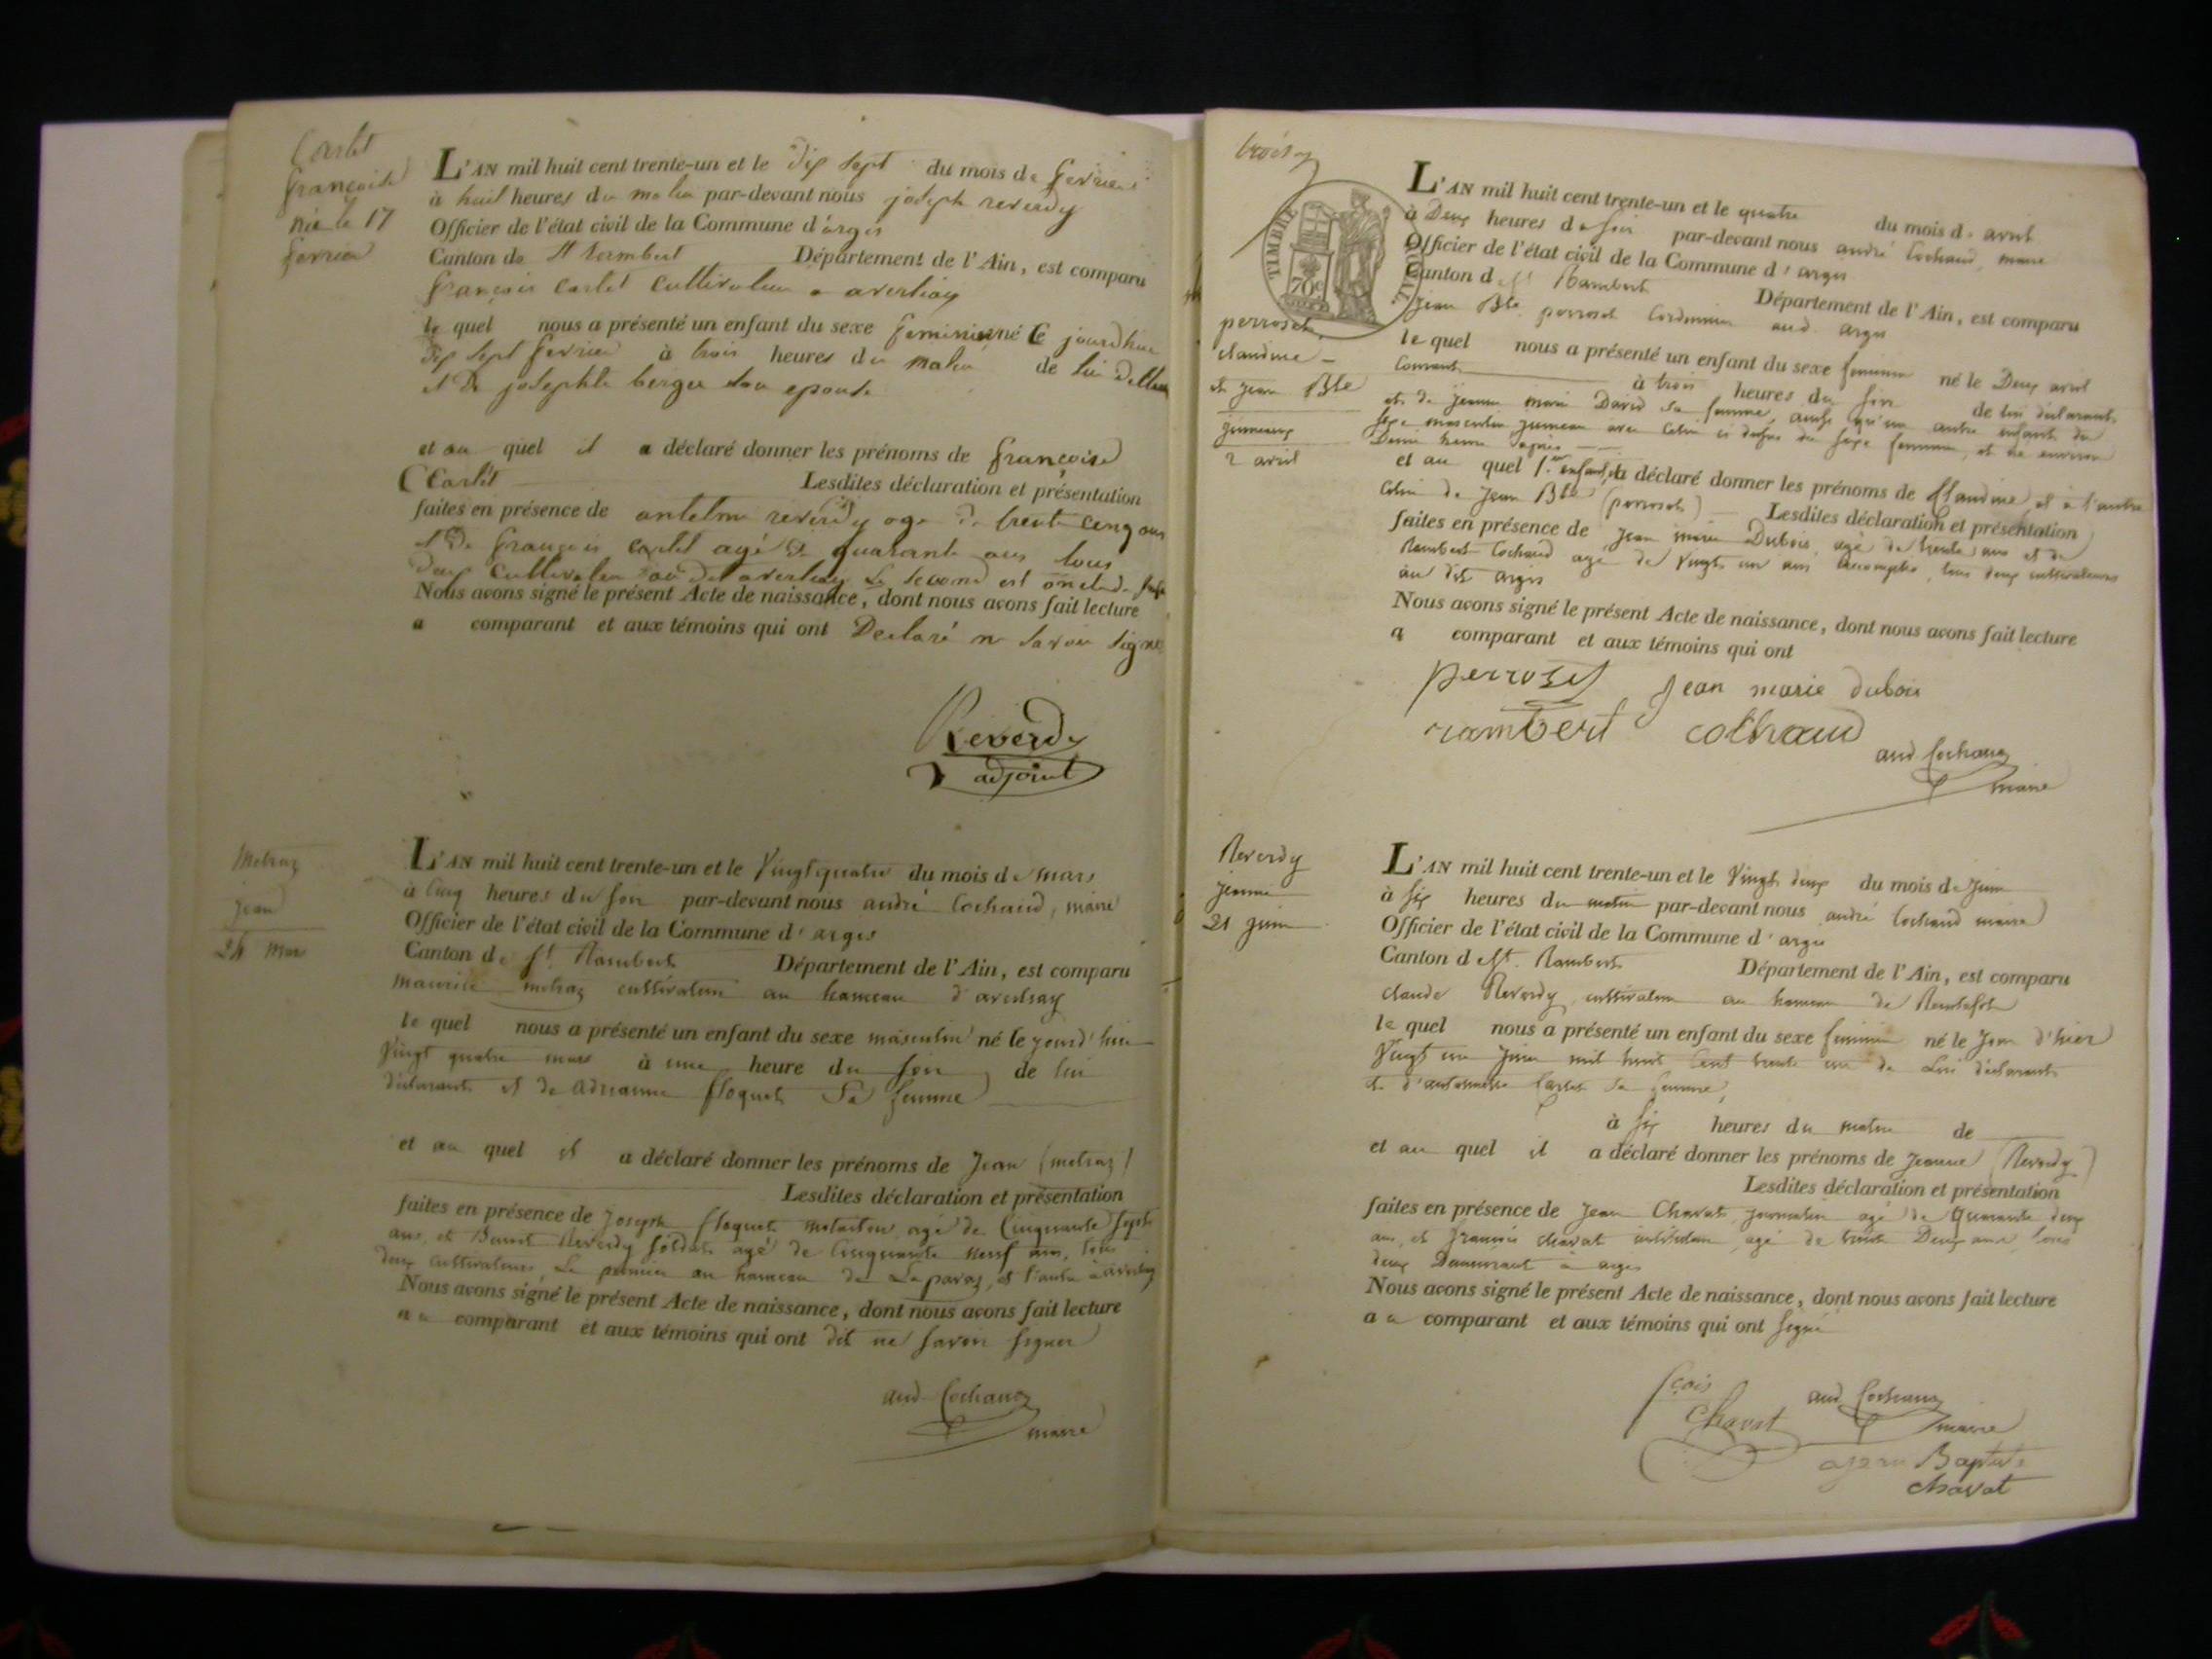 Cartet
françoise
née le 17
fevrier
L'AN mil huit cent trente-un et le dix sept du mois de fevrier
à huit heures du matin par-devant nous joseph reverdy
Officier de l'état civil de la Commune d'argis
Canton de st rambert Département de l'Ain, est comparu
françois Cartet Cultivateur a
le quel nous a présenté un enfant du sexe feminin né Ce jourdhui
dix sept fevrier à trois heures du matin de lui
et De josephte berger son epouse
et au quel il a déclaré donner les prénoms de françoise
(Cartet Lesdites déclaration et présentation
faites en présence de antelme reverdy age de trente cinq ans
et De françois Cartet agé De quarante ans tous
deux Cultivateur Le Second est oncle
Nous avons signé le présent Acte de naissance, dont nous avons fait lecture
a comparant et aux témoins qui ont Declaré ne Savoir Signe
Reverdy
adjoint
Metraz
jean
24 mars
L'AN mil huit cent trente-un et le Vingt quatre du mois de mars
à Cinq heures du soir par-devant nous andré Cochaud, maire
Officier de l'état civil de la Commune d'argis
Canton de St. Rambert Département de l'Ain, est comparu
maurice metraz cultivateur au hameau d'
le quel nous a présenté un enfant du sexe masculin né le jourd'hui
Vingt quatre mars à une heure du soir de lui
déclarant et de floquet Sa femme
et au quel il a déclaré donner les prénoms de Jean (metraz)
Lesdites déclaration et présentation
faites en présence de Joseph floquet agé de Cinquante Sept
ans, et Benoit Reverdy soldat agé de Cinquante neuf ans, tous
deux cultivateurs, Le premier au hameau de et l'autre à
Nous avons signé le présent Acte de naissance, dont nous avons fait lecture
au comparant et aux témoins qui ont dit ne savoir signer
and Cochaud
maire
TIMBRE ROYAL
70c
perroset
claudine
et jean Bte
jumeaux
2 avril
L'AN mil huit cent trente-un et le quatre du mois d. avril
à Deux heures du soir par-devant nous andré Cochaud, maire
Officier de l'état civil de la Commune d'argis
Canton de St Rambert Département de l'Ain, est comparu
jean Bte perroset Cordonnier aud. argis
le quel nous a présenté un enfant du sexe feminin né le Deux avril
Courant à trois heures du soir de lui déclarant
et de jeanne marie David sa femme, ainsi qu'un autre enfant du
sexe masculin jumeau avec Celui ci dessus du sexe feminin, et né environ
Demi heure après
et au quel 1er enfant, il a déclaré donner les prénoms de Claudine, et à l'autre
Celui de Jean Bte (perroset) Lesdites déclaration et présentation
faites en présence de jean marie Dubois, agé de trente ans et de
Rambert Cochaud agé de Vingt un ans accomplis, tous deux cultivateurs
au dit argis
Nous avons signé le présent Acte de naissance, dont nous avons fait lecture
a comparant et aux témoins qui ont
perroset jean marie dubois
rambert cochaud
and Cochaud
maire
Reverdy
jeanne
21 juin
L'AN mil huit cent trente-un et le Vingt deux du mois de Juin
à six heures du matin par-devant nous andré Cochaud maire
Officier de l'état civil de la Commune d'argis
Canton de St. Rambert Département de l'Ain, est comparu
claude Reverdy cultivateur au hameau de
le quel nous a présenté un enfant du sexe feminin né le Jour d'hier
Vingt un Juin mil huit Cent trente un de Lui déclarant
et d'antoinette Cartet Sa femme,
à six heures du matin de
et au quel il a déclaré donner les prénoms de Jeanne (Reverdy)
Lesdites déclaration et présentation
faites en présence de Jean Chavat, journalier agé de Quarante deux
ans, et françois chavat cultivateur, agé de trente Deux ans, tous
deux Demeurant à argis
Nous avons signé le présent Acte de naissance, dont nous avons fait lecture
au comparant et aux témoins qui ont signé
fçois
Chavat
and Cochaud
maire
Baptiste
chavat